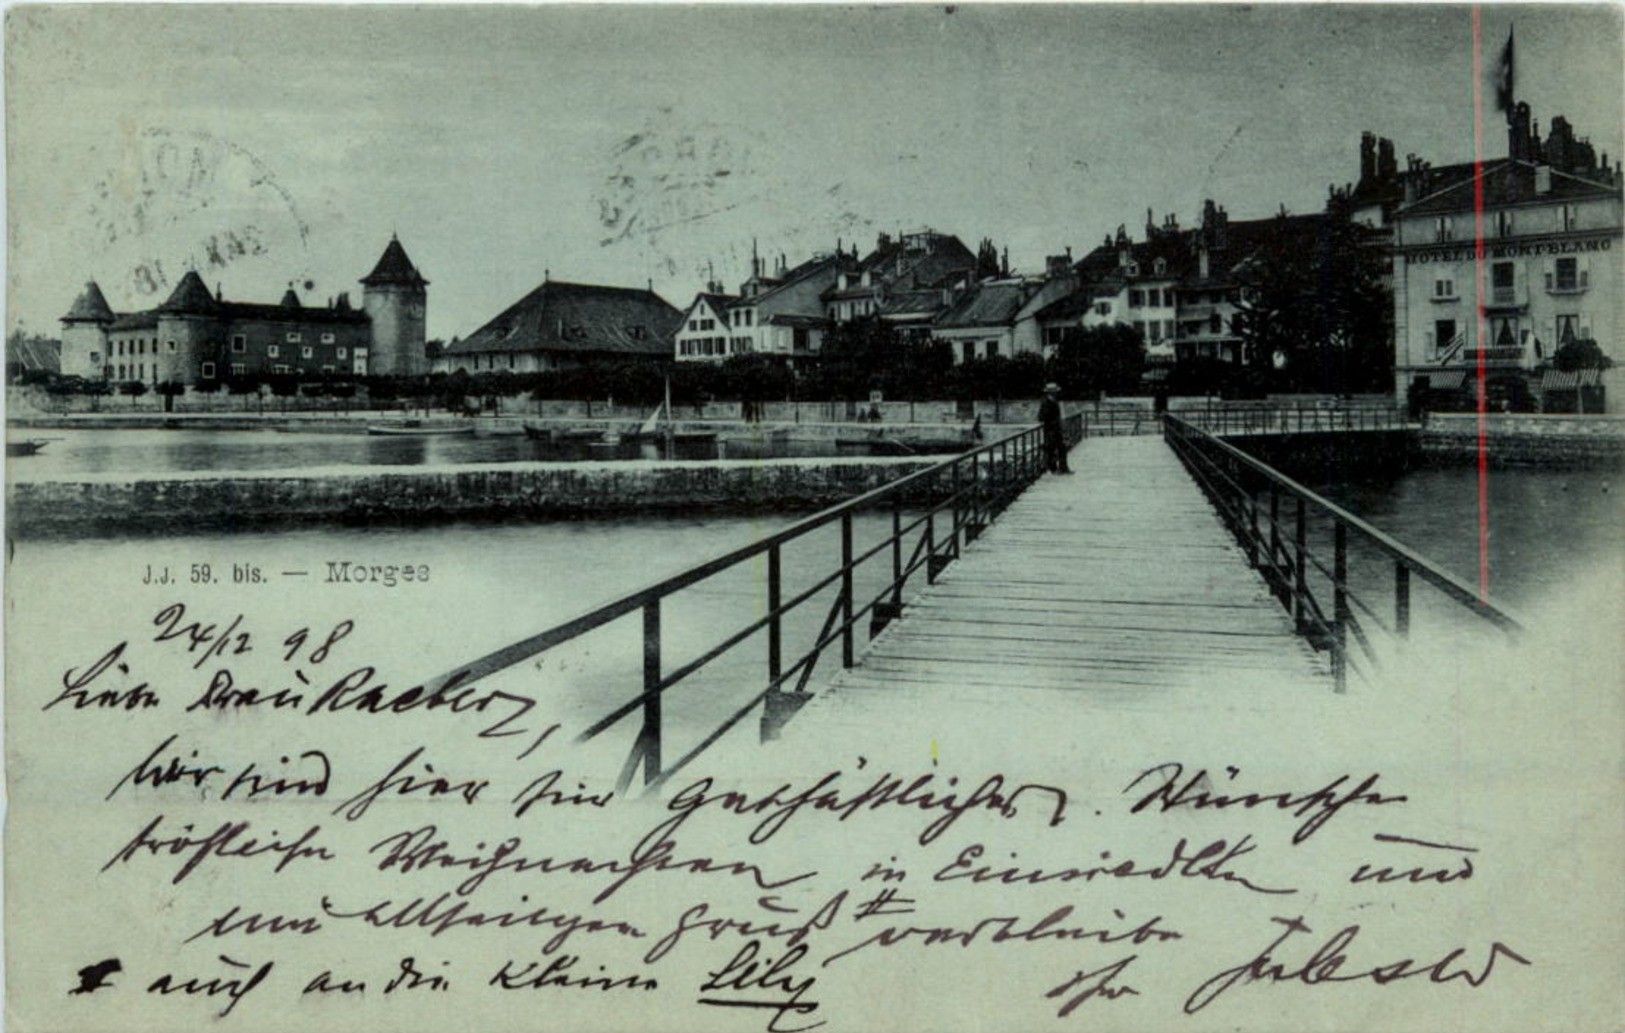 HOTEL DU MONT-BLANC
J.J. 59. bis. — Morges
24/12 98
Liebe Frau Kaelber,
wir sind hier für Geschäftliches. Wünsche
fröhliche Weihnachten in Einsiedeln und
mit allseitigen Gruß # verbleibe
# auch an die kleine Lily
Ihr